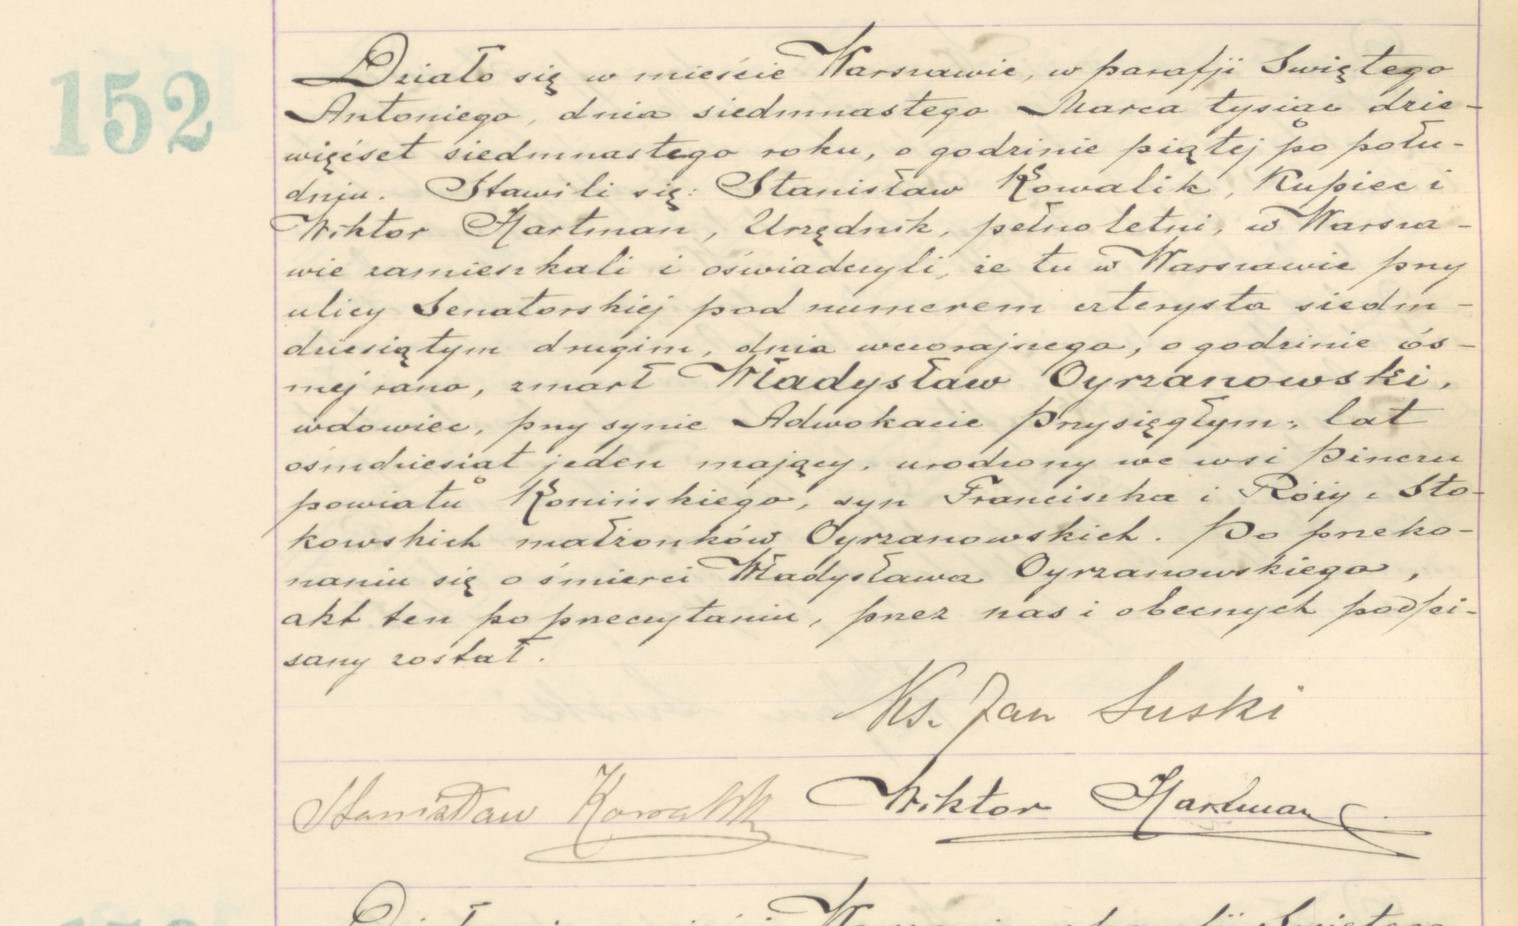 152
Działo się w mieście Warszawie, w parafji Swiętego
Antoniego, dnia siedmnastego Marca tysiąc dzie-
więćset siedmnastego roku, o godzinie piątej po połu-
dniu. Stawili się: Stanisław Kowalik, Kupiec i
Wiktor Hartman, Urzędnik, pełnoletni, w Warsza-
wie zamieszkali i oświadczyli, że tu w Warszawie przy
ulicy Senatorskiej pod numerem czterysta siedm-
dziesiątym drugim, dnia wczorajszego, o godzinie ós-
mej rano, zmarł Władysław Oyrzanowski,
wdowiec, przy synie Adwokacie Przysięgłym, lat
ośmdziesiąt jeden mający, urodzony we wsi
powiatu Konińskiego, syn Franciszka i Róży z Sto-
kowskich małżonków Oyrzanowskich. Po przeko-
naniu się o śmierci Władysława Oyrzanowskiego,
akt ten po przeczytaniu, przez nas i obecnych podpi-
sany został.
Ks. Jan Suski
Stanisław Kowalik Wiktor Hartman